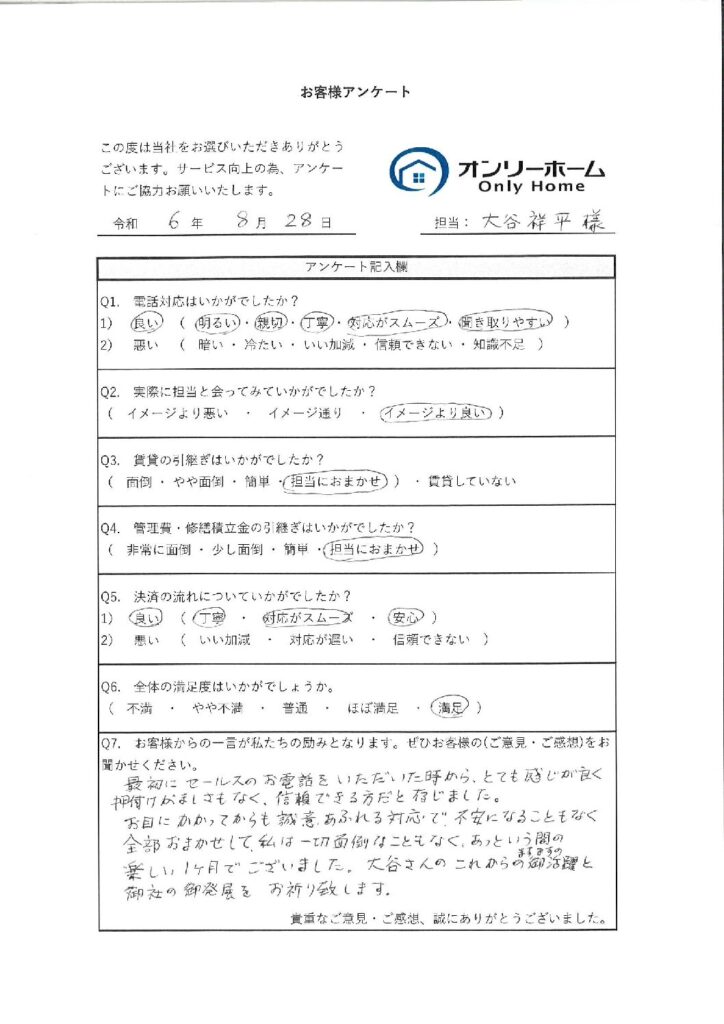 お客様アンケート
この度は当社をお選びいただきありがとう
ございます。サービス向上の為、アンケー
トにご協力お願いいたします。
オンリーホーム
Only Home
令和 6 年 8 月 28 日
担当: 大谷祥平様
アンケート記入欄
Q1. 電話対応はいかがでしたか？
1) 良い ( 明るい・親切・丁寧・対応がスムーズ・聞き取りやすい )
2) 悪い ( 暗い・冷たい・いい加減・信頼できない・知識不足 )
Q2. 実際に担当と会ってみていかがでしたか？
( イメージより悪い ・ イメージ通り ・ イメージより良い )
Q3. 賃貸の引継ぎはいかがでしたか？
( 面倒・やや面倒・簡単・担当におまかせ )・賃貸していない
Q4. 管理費・修繕積立金の引継ぎはいかがでしたか？
( 非常に面倒・少し面倒・簡単・担当におまかせ )
Q5. 決済の流れについていかがでしたか？
1) 良い ( 丁寧 ・ 対応がスムーズ ・ 安心 )
2) 悪い ( いい加減 ・ 対応が遅い ・ 信頼できない )
Q6. 全体の満足度はいかがでしょうか。
( 不満 ・ やや不満 ・ 普通 ・ ほぼ満足 ・ 満足 )
Q7. お客様からの一言が私たちの励みとなります。ぜひお客様の(ご意見・ご感想)をお
聞かせください。
最初にセールスのお電話をいただいた時から、とても感じが良く
押付けがましさもなく、信頼できる方だと存じました。
お目にかかってからも誠意あふれる対応で、不安になることもなく
全部おまかせして、私は一切面倒なこともなく、あっという間の
楽しい1ヶ月でございました。大谷さんのこれからのますますの御活躍と
御社の御発展をお祈り致します。
貴重なご意見・ご感想、誠にありがとうございました。